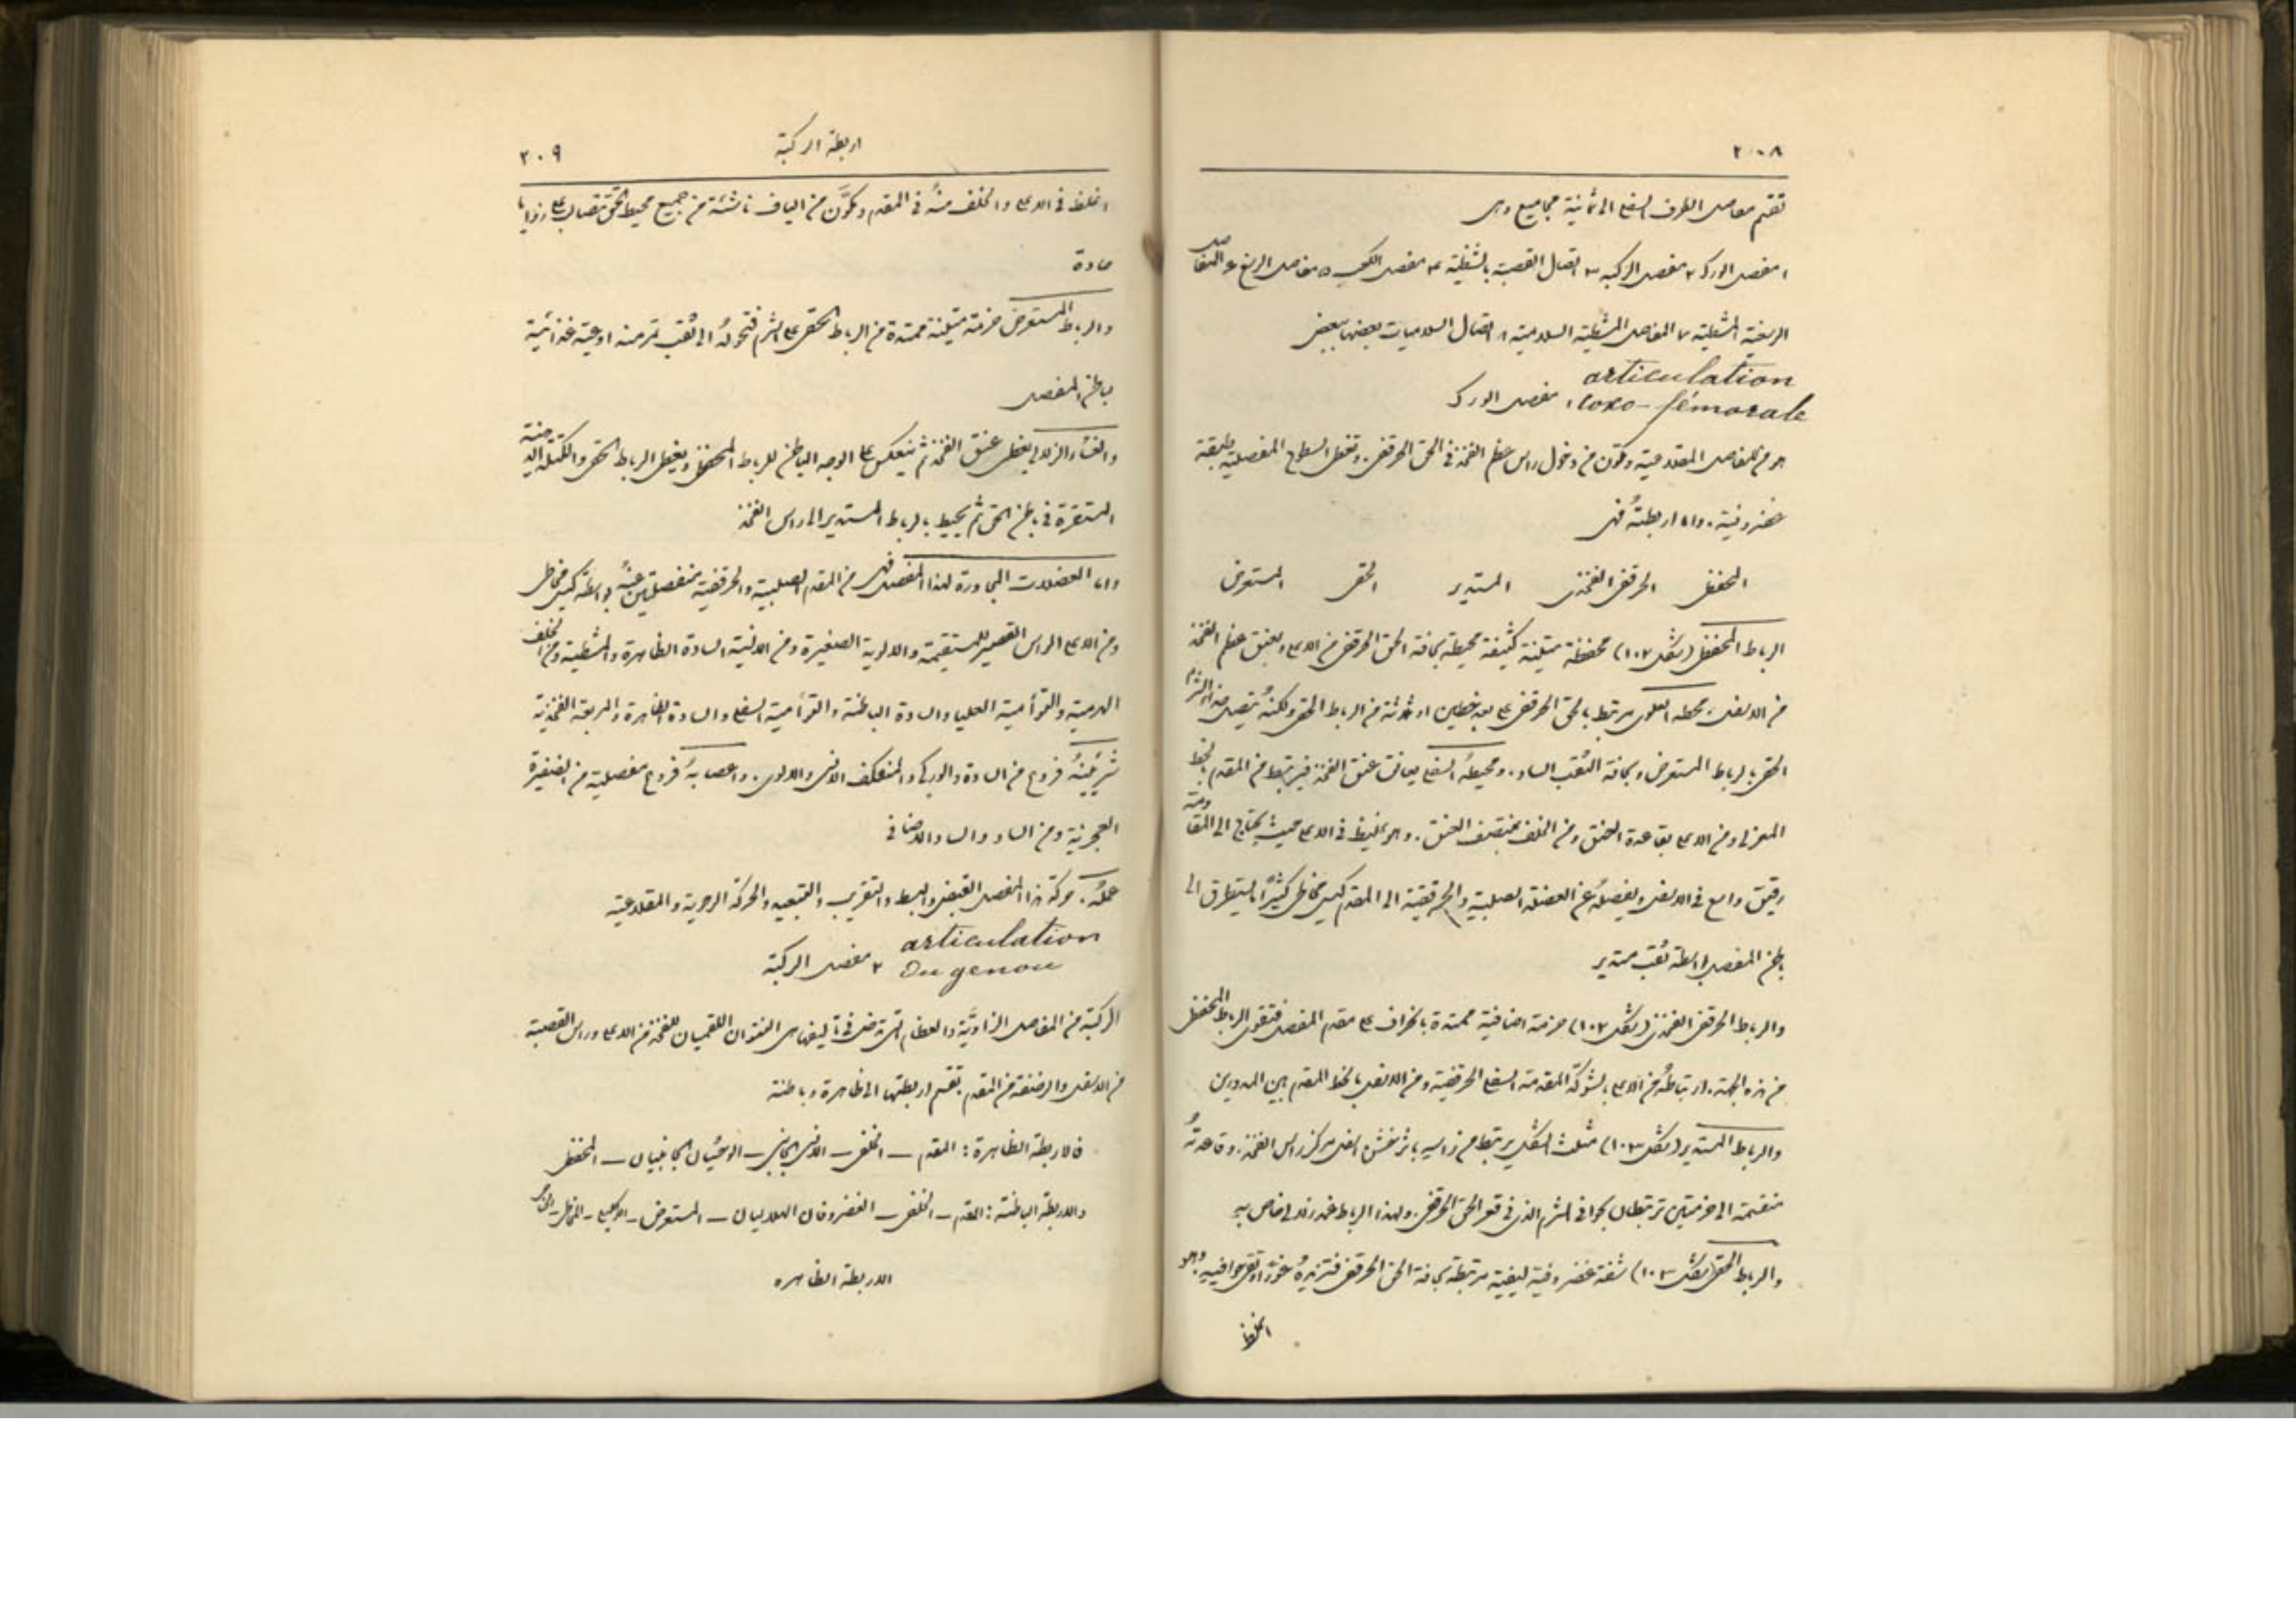 ٢٠٨
تقسم مفاصل الطرف السفلي الى ثمانية مجاميع وهي
١ مفصل الورك ٢ مفصل الركبه ٣ اتصال القصبة بالشظية ٤ مفصل الكعب ٥ مفاصل الرسغ ٦ المفاصل
الرسغية المشطية ٧ المفاصل المشطية السلامية ٨ اتصال السلاميات بعضها ببعض
articulation
coxo-fémorale ١ مفصل الورك
هو من المفاصل المقلاعية ويتكون من دخول راس عظم الفخذ في الحق الحرقفي. وتغطي السطوح المفصلية طبقة
غضروفية. واما اربطتهُ فهي
المحفظي الحرقفي الفخذي المستدير الحقي المستعرض
الرباط المحفظي (شكل ١٠٢) محفظة متينة كثيفة محيطة بحافة الحق الحرقفي من الاعلى وبعنق عظم الفخذ
من الاسفل. محيطه العلوي مرتبط بالحق الحرقفي على بعد خطين او ثلاثة من الرباط الحقي ولكنهُ يتصل عند الشرم
الحقي بالرباط المستعرض وبحافة الثقب الساد. ومحيطهُ السفلي يعانق عنق الفخذ فيرتبط من المقدم بالخط
المغزلي ومن الاعلى بقاعدة العنق ومن الخلف بمنتصف العنق. وهو غليظ في الاعلى حيث يحتاج الى المقاومة
رقيق واسع في الاسفل ويفصلهُ عن العضلة الصلبية والحرقفية الى المقدم كيس مخاطي كثيرًا ما يستطرق الى
باطن المفصل بواسطة ثقب مستدير
والرباط الحرقفي الفخذي (شكل ١٠٢) حزمة اضافية ممتدة بانحراف على مقدم المفصل فتقوي الرباط المحفظي
من هذه الجهة. ارتباطهُ من الاعلى بالشوكة المقدمة السفلى الحرقفية ومن الاسفل بالخط المقدم بين المدورين
والرباط المستدير (شكل ١٠٣) مثلث الشكل يرتبط من راسه باثر خشن اسفل مركز راس الفخذ. وقاعدتهُ
منقسمة الى حزمتين ترتبطان بحوافي الشرم الذي في قعر الحق الحرقفي. ولهذا الرباط غمد زلالي خاص به
والرباط الحقي (شكل ١٠٣) شفة غضروفية ليفية مرتبطة بحافة الحق الحرقفي فتزيدهُ غورًا وتقي حوافيه وهو
اغلظ
اربطة الركبة
٢٠٩
اغلظ في الاعلى والخلف منهُ في المقدم ويكوَّن من الياف ناشئة من جميع محيط الحق تتصالب على زوايا
حادة
والرباط المستعرض حزمة متينة ممتدة من الرباط الحقي على الشرم فتحولهُ الى ثقب تمر منه اوعية غذائية
باطن المفصل
والغشاء الزلالي يغطي عنق الفخذ ثم ينعكس على الوجه الباطن للرباط المحفظي ويغطي الرباط الحقي والكتلة الدهنية
المستقرة في باطن الحق ثم يحيط بالرباط المستدير الى راس الفخذ
واما العضلات المجاورة لهذا المفصل فهي من المقدم الصلبية والحرقفية منفصلتين عنهُ بواسطة كيس مخاطي
ومن الاعلى الراس القصير للمستقيمة والالوية الصغيرة ومن الانسية السادة الظاهرة والمشطية ومن الخلف
الهرمية والتوأمية العليا والسادة الباطنة والتوأمية السفلى والسادة الظاهرة والمربعة الفخذية
شرايينهُ فروع من السادة والوركي والمنعكف الانسي والالوي. واعصابهُ فروع مفصلية من الضفيرة
العجزية ومن الساد والساد الاضافي
عملهُ. حركة هذا المفصل القبض والبسط والتقريب والتبعيد والحركة الرحوية والمقلاعية
articulation
Du genou ٢ مفصل الركبة
الركبة من المفاصل الزاويَّة والعظام التي تدخل في تأليفها هي النتوان اللقميان للفخذ من الاعلى وراس القصبة
من الاسفل والرضفة من المقدم. تقسم اربطتها الى ظاهرة وباطنة
فالاربطة الظاهرة: المقدم ــ الخلفي ــ الانسي الجانبي ــ الوحشيان الجانبيان ــ المحفظي
والاربطة الباطنة: المقدم ــ الخلفي ــ الغضروفان الهلاليان ــ المستعرض ــ الاكليلي ــ المخاطي ــ
الاربطة الظاهره